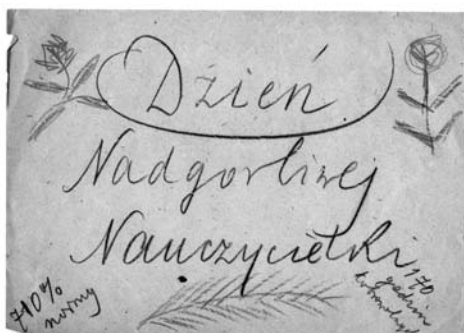 Dzień
Nadgorliwej
Nauczycielki
710%
normy
170
godzin